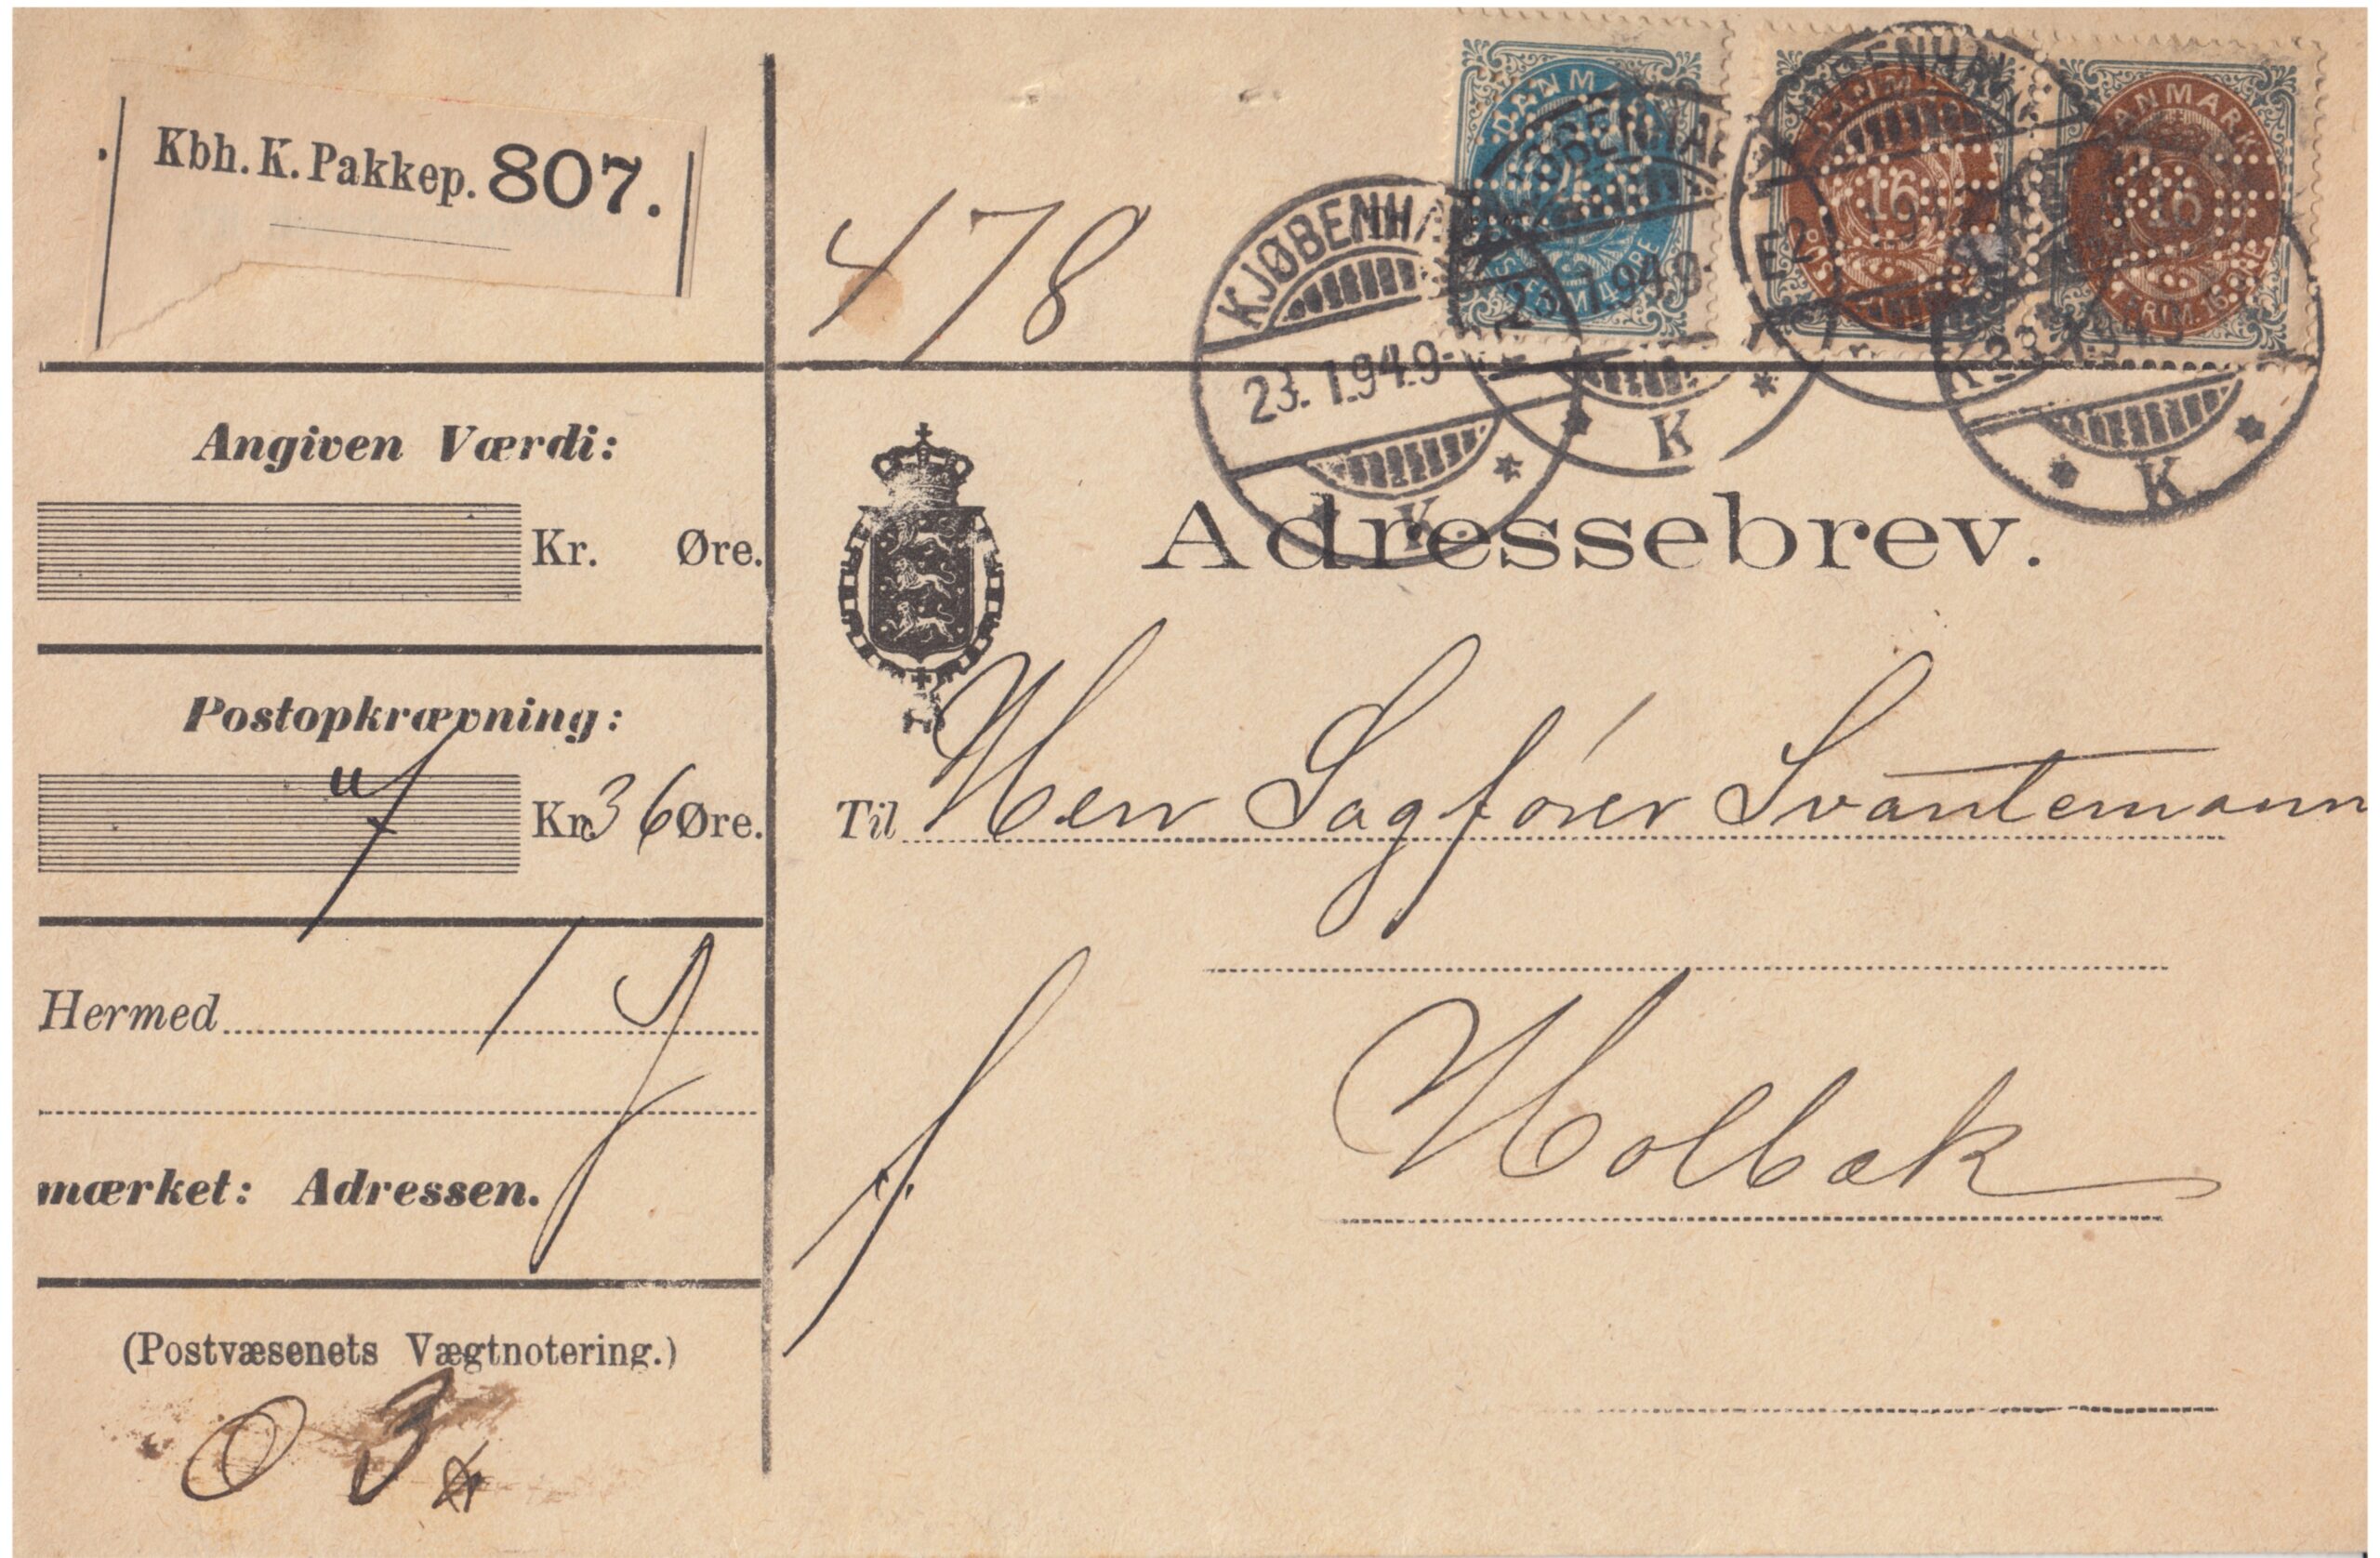 Kbh. K. Pakkep. 807.
478
DANMARK
16
KJØBENHAVN
23. 1.94.9-
K
Angiven Værdi:
Kr. Øre.
Adressebrev.
Postopkrævning:
Kr. 36 Øre.
Til Herr Sagfører Svantemann
Hermed 1
Holbæk
mærket: Adressen.
(Postvæsenets Vægtnotering.)
0 3